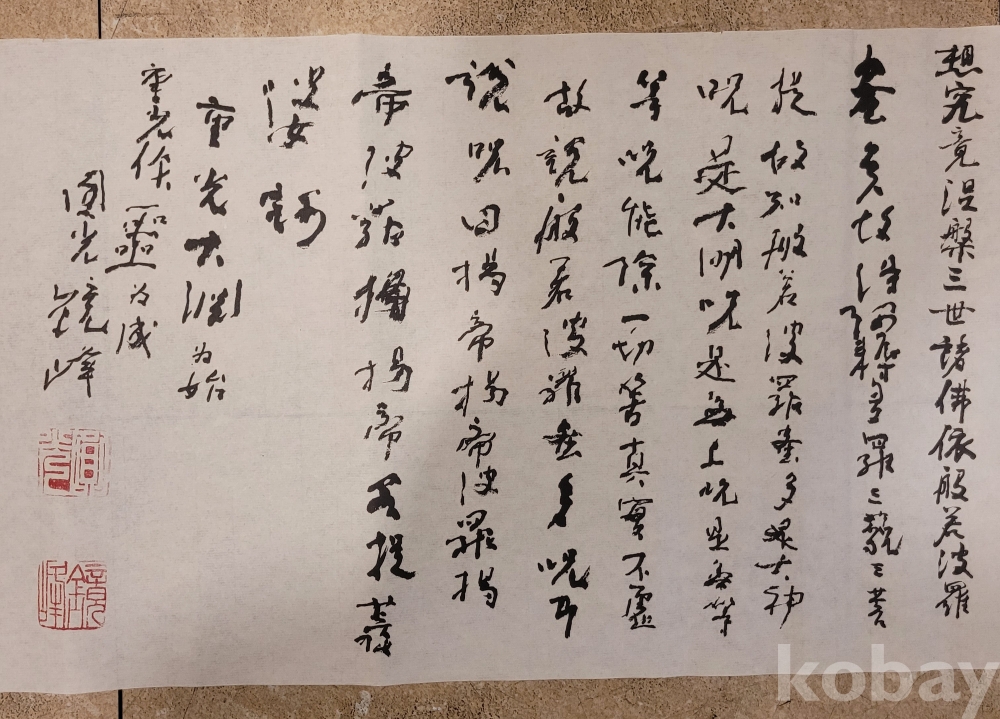 想究竟涅槃三世諸佛依般若波羅
蜜多故得阿耨多羅三藐三菩
提故知般若波羅蜜多是大神
呪是大明呪是無上呪是無等
等呪能除一切苦真實不虛
故說般若波羅蜜多呪即
說呪曰揭帝揭帝波羅揭
帝波羅揭帝菩提
為始
為成
圓光鏡峰
圓光
鏡峰
kobay